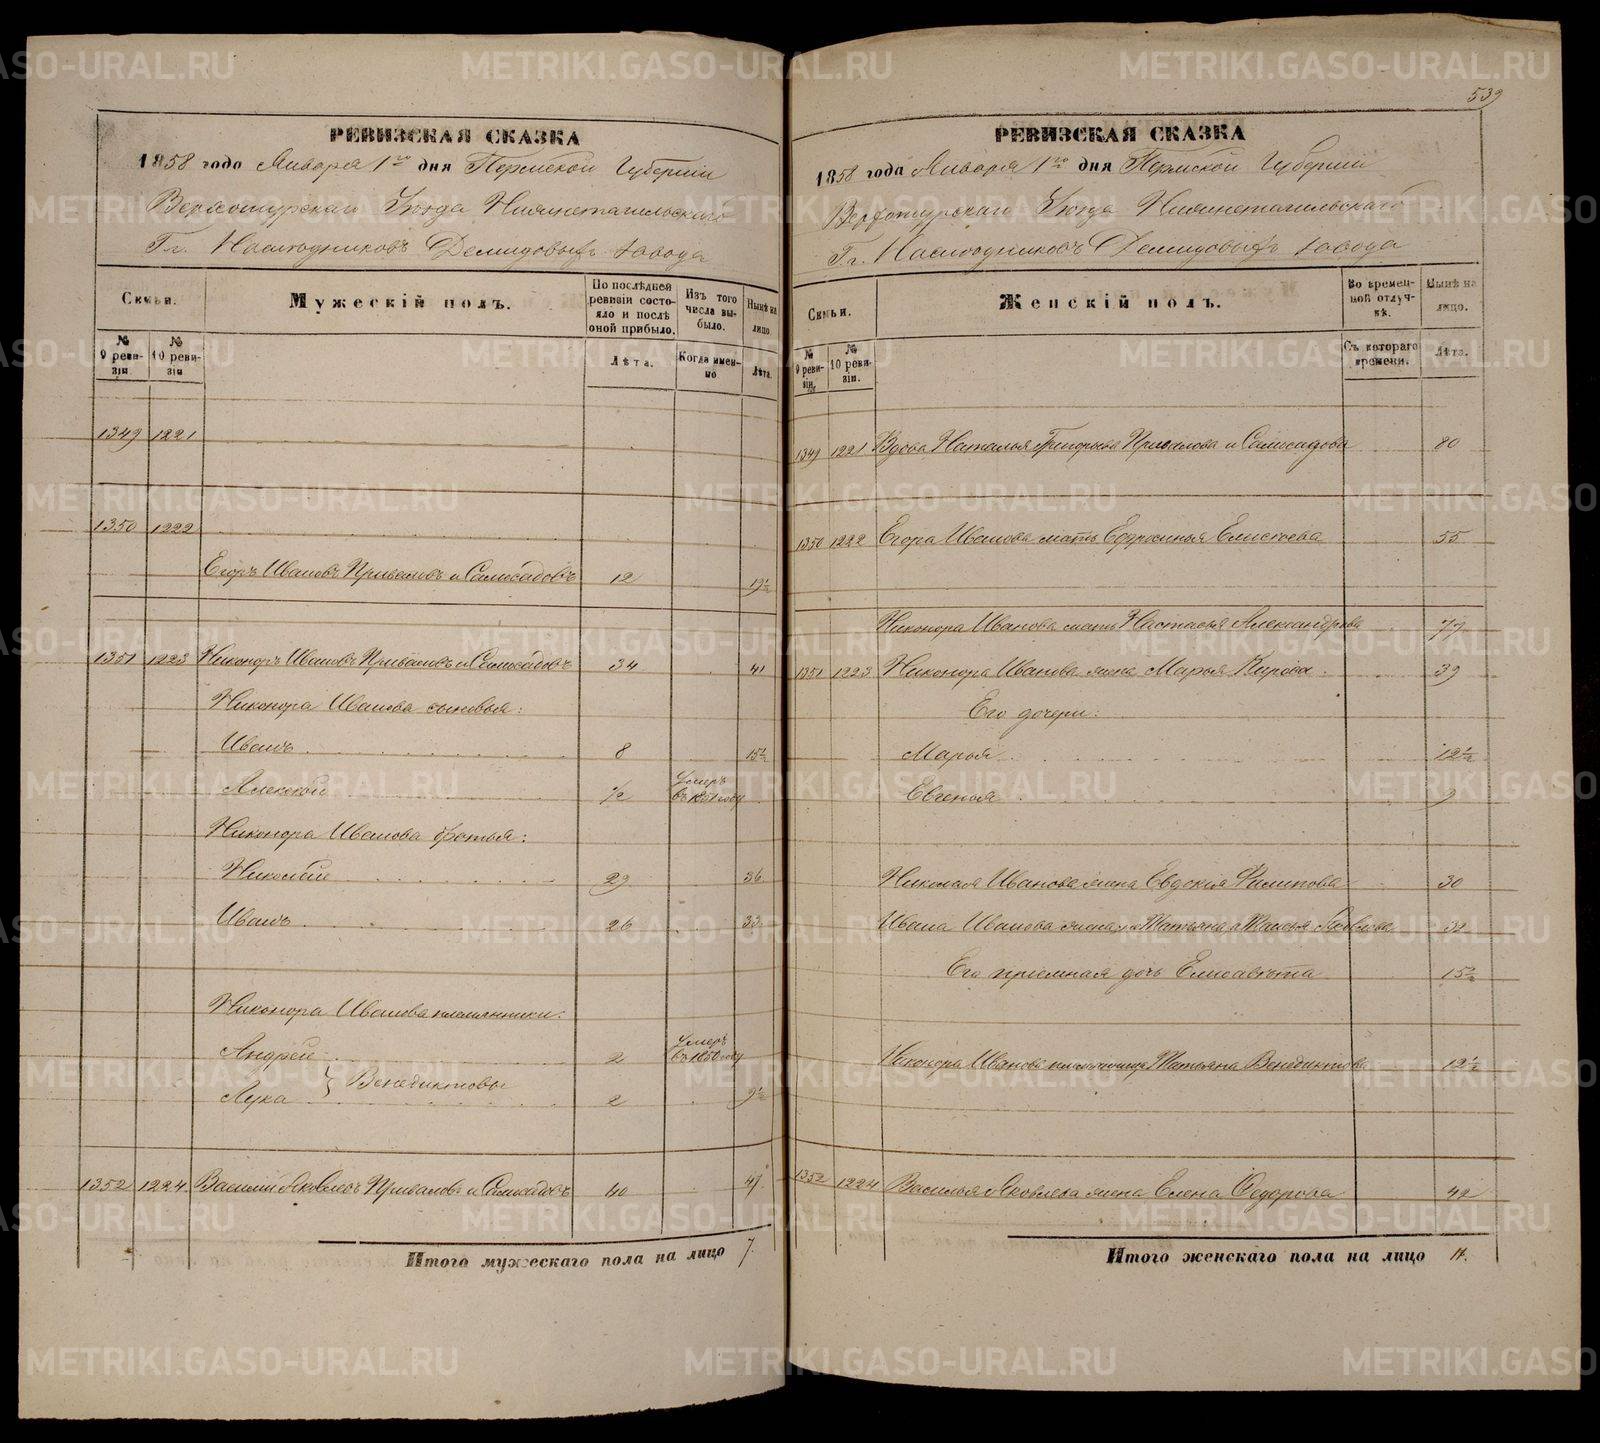 РЕВИЗСКАЯ СКАЗКА
1858 года Января 1го дня Пермской Губернiи
Верхотурскаго Уѣзда Нижнетагильскаго
Гг. Наслѣдниковъ Демидовыхъ завода
Семьи.
Мужескiй полъ.
По послѣдней ревизiи состояло и послѣ оной прибыло.
Изъ того числа выбыло.
Нынѣ на лицо.
№ 9 ревизiи
№ 10 ревизiи
Лѣта.
Когда именно
Лѣта.
1349 1221
1350 1222
Егоръ Ивановъ Приваловъ и Самосадовъ 12 19½
1351 1223 Никоноръ Ивановъ Приваловъ и Самосадовъ 34 41
Никонора Иванова сыновья:
Иванъ 8 15½
Алексѣй ½ Умеръ въ 1851 году
Никонора Иванова братья:
Николай 29 36
Иванъ 26 33
Никонора Иванова племянники:
Андрей 2 Умеръ въ 1850 году
Венедиктовы
Лука 2 9½
1352 1224 Василiй Яковлевъ Приваловъ и Самосадовъ 40 47
Итого мужескаго пола на лицо 7.
539
РЕВИЗСКАЯ СКАЗКА
1858 года Января 1го дня Пермской Губернiи
Верхотурскаго Уѣзда Нижнетагильскаго
Гг. Наслѣдниковъ Демидовыхъ завода
Семьи.
Женскiй полъ.
Во временной отлучкѣ.
Нынѣ на лицо.
№ 9 ревизiи.
№ 10 ревизiи.
Съ котораго времени.
Лѣта.
1349 1221 Вдова Наталья Григорьева Привалова и Самосадова 80
1350 1222 Егора Иванова мать Ефросинья Елисѣева 55
Никонора Иванова мать Настасья Александрова 77
1351 1223 Никонора Иванова жена Марья Кирова 39
Его дочери:
Марья 12½
Евгенья 9
Николая Иванова жена Евдокiя Филипова 30
Ивана Иванова жена Татьяна Яковлева 32
Его прiемная дочь Елисавѣта 15½
Никонора Иванова племянница Татьяна Венедиктова 12½
1352 1224 Василья Яковлева жена Елена Федорова 42
Итого женскаго пола на лицо 11.
METRIKI.GASO-URAL.RU